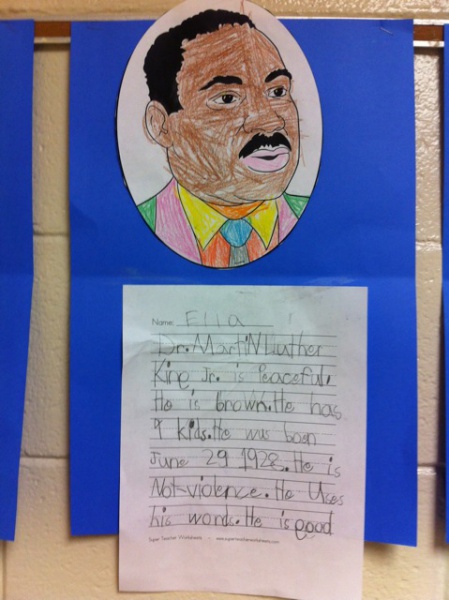 Name: Ella
Dr. MartiN Luther
King Jr. is Peaceful.
He is brown. He has
4 kids. He was born
June 29 1928. He is
Not violence. He Uses
his words. He is good
Super Teacher Worksheets - www.superteacherworksheets.com